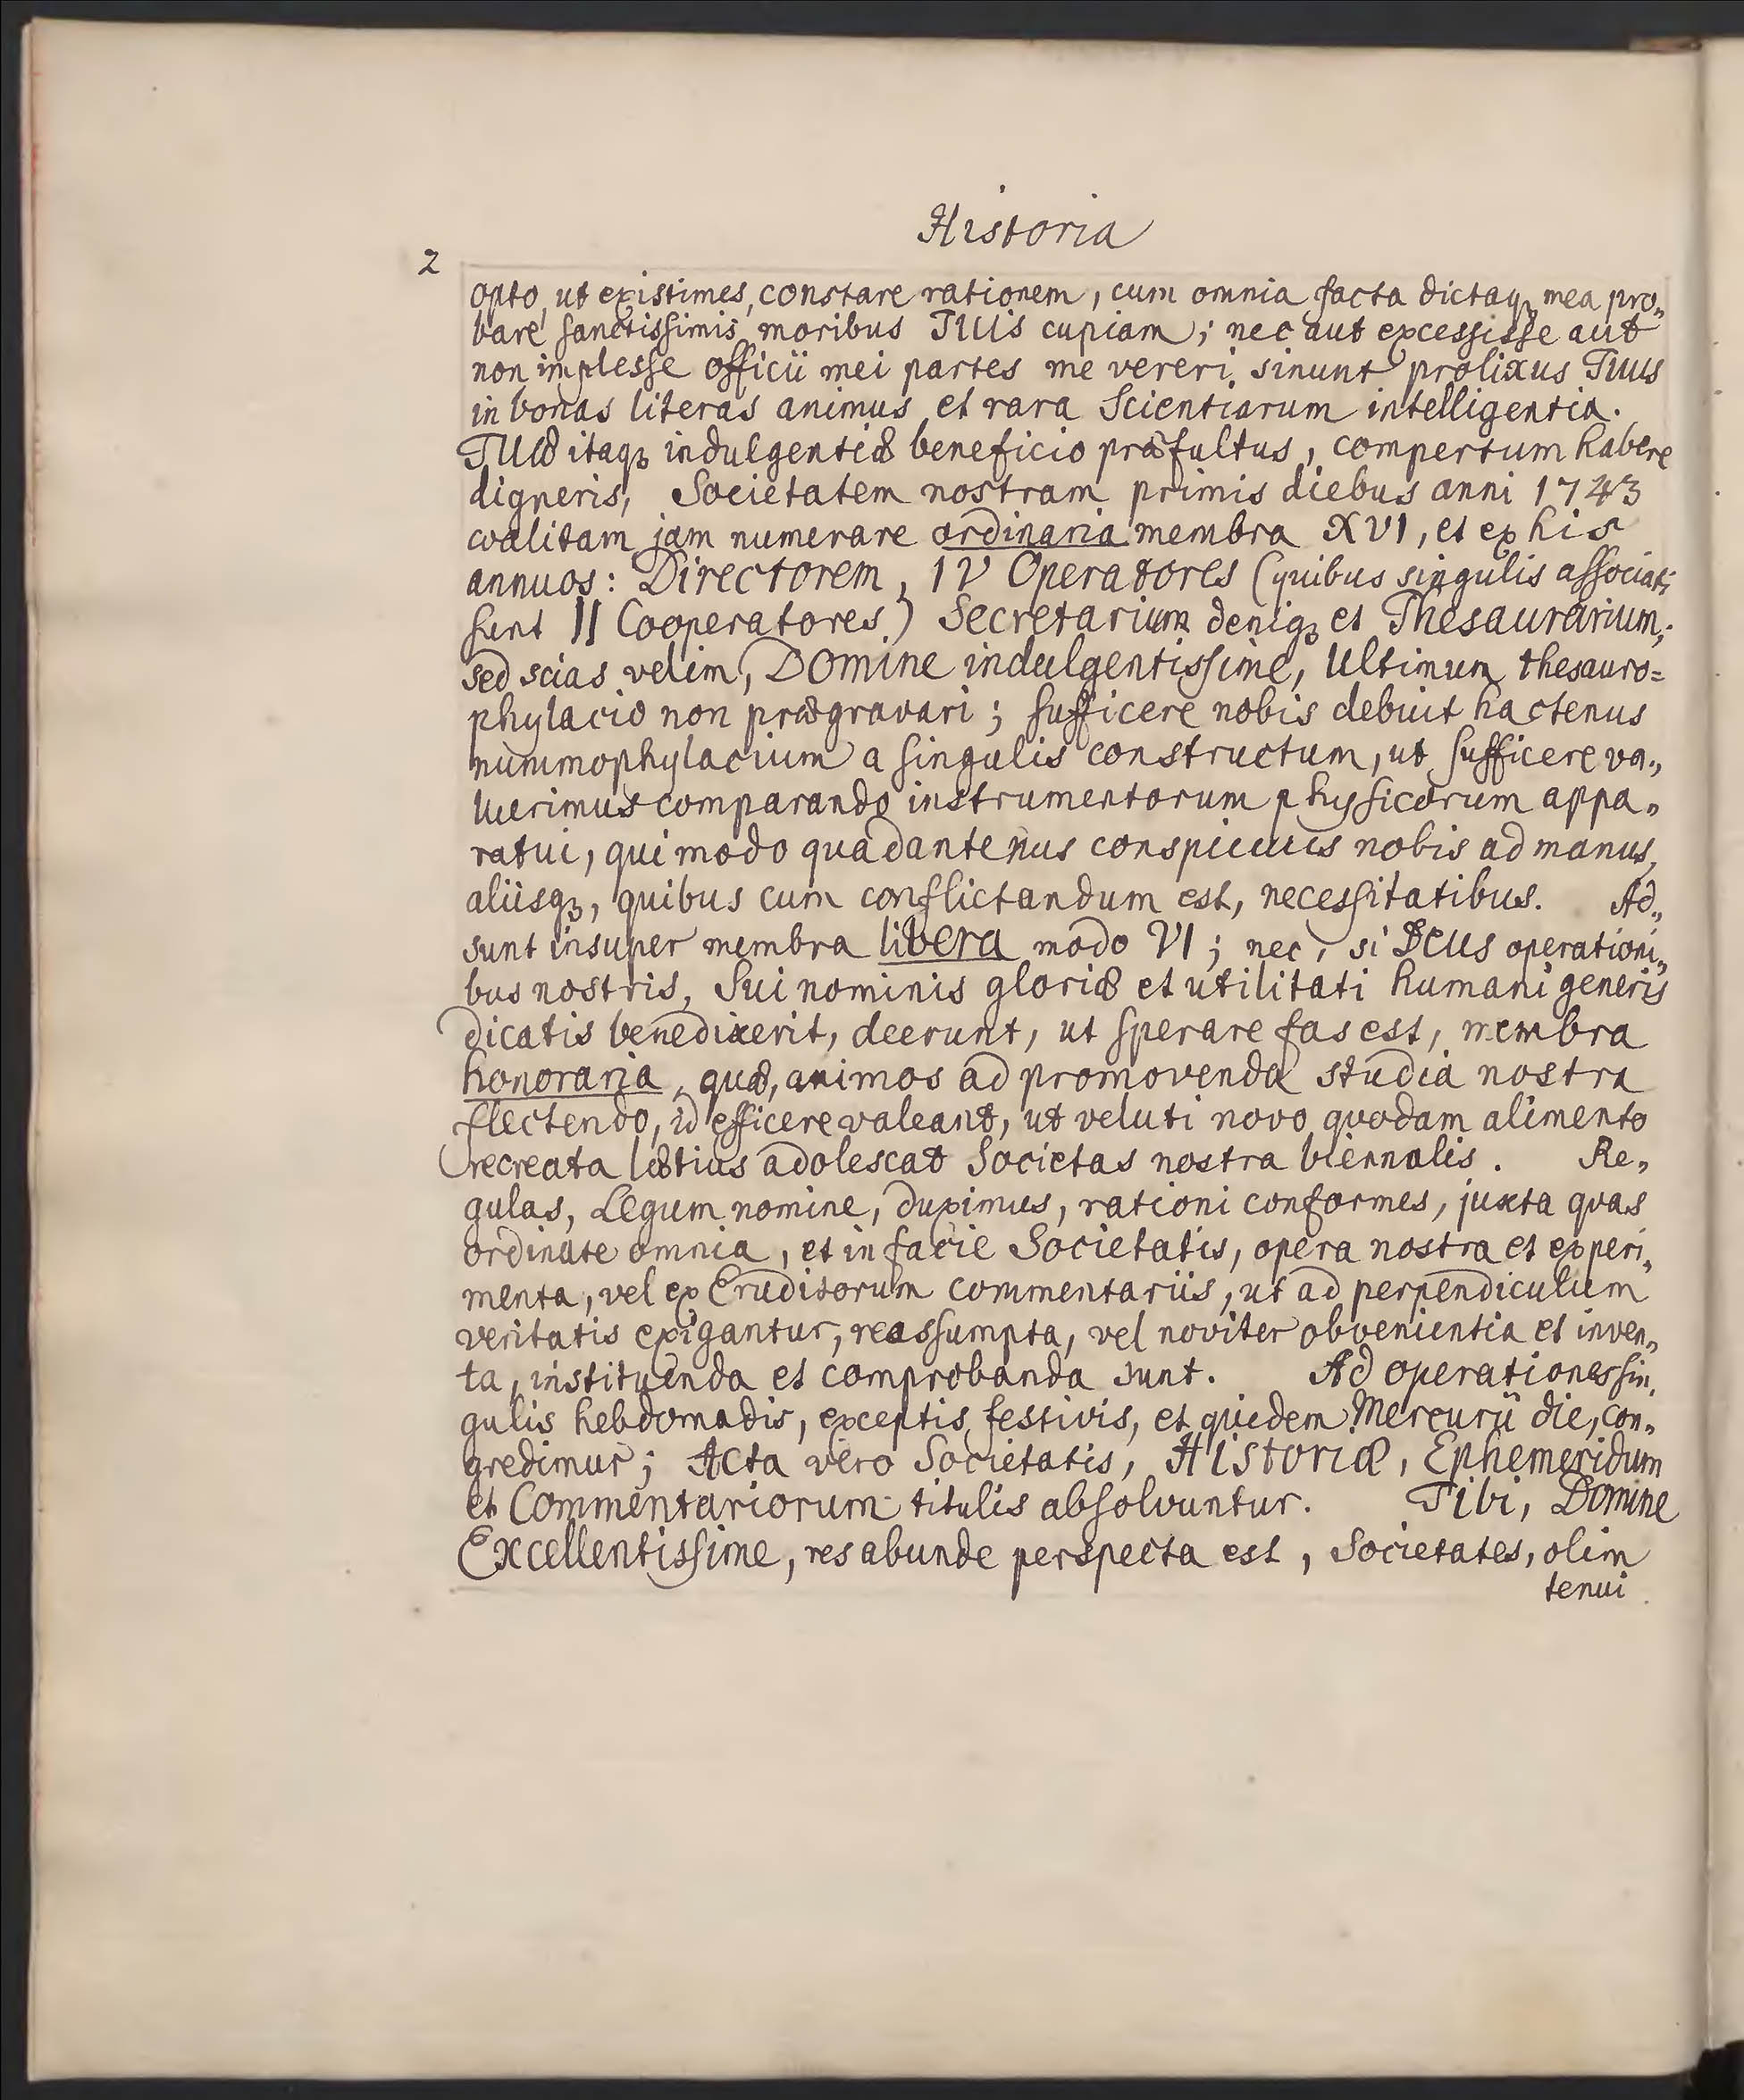 Historia
2
opto, ut existimes, constare rationem, cum omnia facta dictaqꝫ mea pro„
bare sanctissimis moribus TUis cupiam; nec aut excessisse aut
non implesse officii mei partes me vereri sinunt prolixus Tuus
in bonas literas animus et rara Scientiarum intelligentia.
TUæ itaqꝫ indulgentiæ beneficio præfultus, compertum habere
digneris, Societatem nostram primis diebus anni 1743
coalitam jam numerare ordinaria membra XVI, et ex his
annuos: Directorem, IV Operatores (quibus singulis associati
sunt II Cooperatores) Secretarium deniqꝫ et Thesaurarium;
sed scias velim, Domine indulgentissime, Ultimum thesauro=
phylacio non prægravari; sufficere nobis debuit hactenus
nummophylacium a singulis constructum, ut sufficere va„
luerimus comparando instrumentorum physicorum appa„
ratui, qui modo quadantenus conspicuus nobis ad manus,
aliisqꝫ, quibus cum conflictandum est, necessitatibus. Ad„
sunt insuper membra libera modo VI; nec, si Deus operationi„
bus nostris, Sui nominis gloriæ et utilitati humani generis
dicatis benedixerit, deerunt, ut sperare fas est, membra
honoraria, quæ, animos ad promovenda studia nostra
flectendo, id efficere valeant, ut veluti novo quodam alimento
recreata lætius adolescat Societas nostra biennalis. Re„
gulas, Legum nomine, duximus, rationi conformes, juxta quas
ordinate omnia, et in facie Societatis, opera nostra et experi„
menta, vel ex Eruditorum commentariis, ut ad perpendiculum
veritatis exigantur, reassumpta, vel noviter obvenientia et inven„
ta, instituenda et comprobanda sunt. Ad operationes sin„
gulis hebdomadis, exceptis festivis, et quidem Mercurii die, con„
gredimur; Acta vero Societatis, Historiæ, Ephemeridum
et Commentariorum titulis absolvuntur. Tibi, Domine
Excellentissime, res abunde perspecta est, Societates, olim
tenui